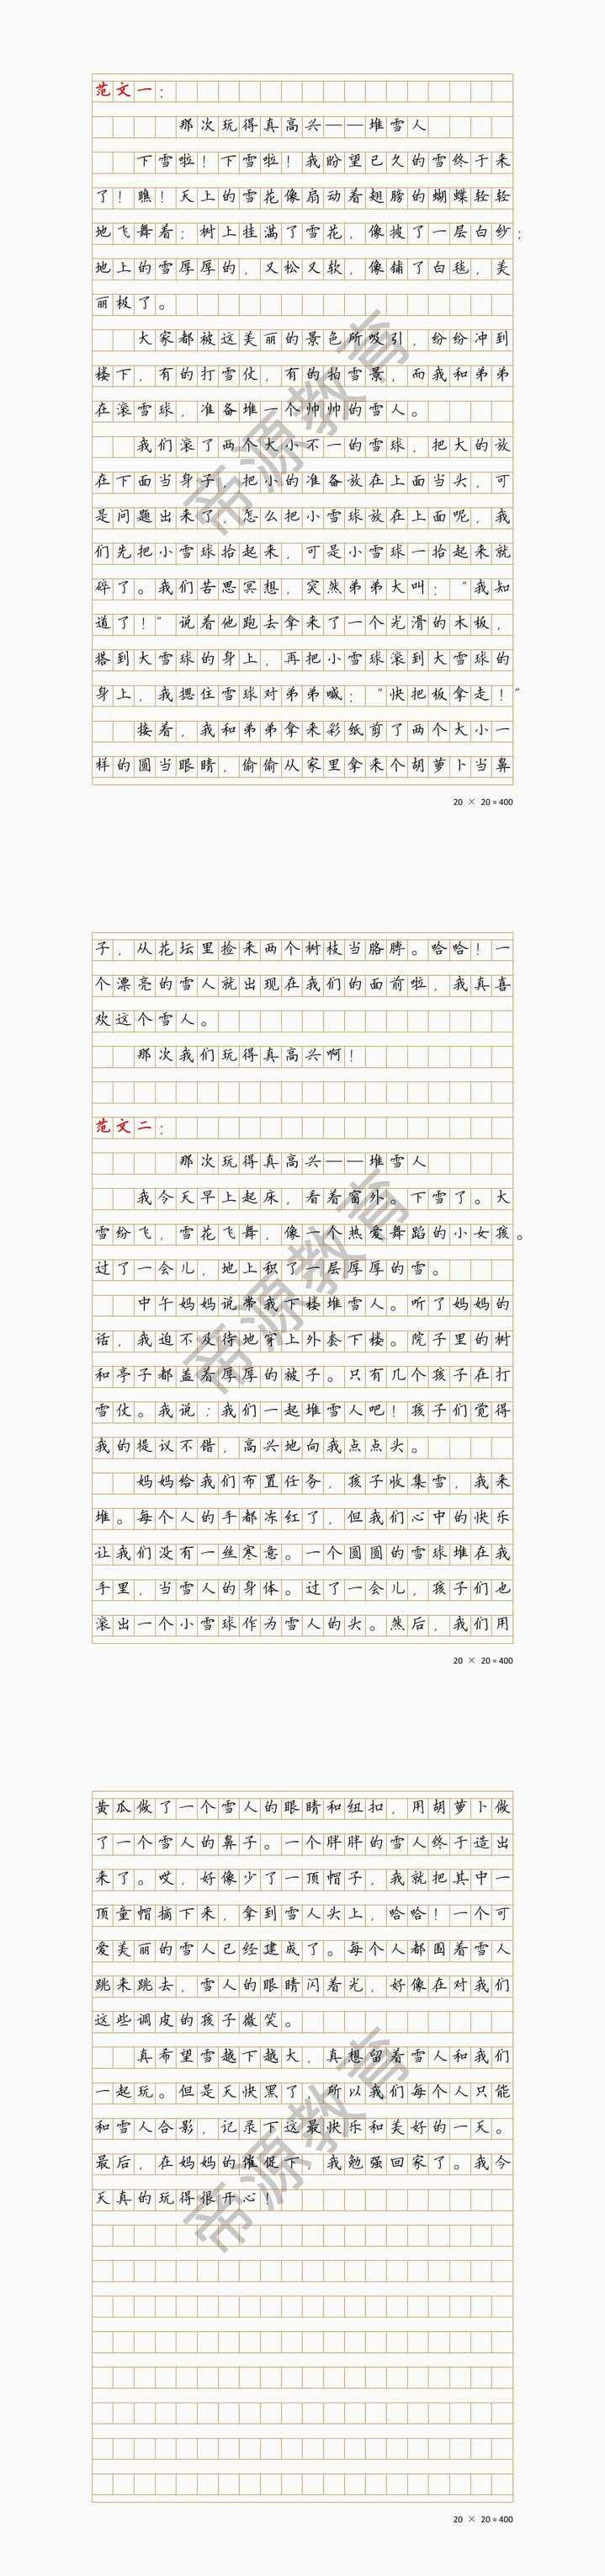 范文一：
那次玩得真高兴——堆雪人
下雪啦！下雪啦！我盼望已久的雪终于来
了！瞧！天上的雪花像扇动着翅膀的蝴蝶轻轻
地飞舞着；树上挂满了雪花，像披了一层白纱；
地上的雪厚厚的，又松又软，像铺了白毯，美
丽极了。
大家都被这美丽的景色所吸引，纷纷冲到
楼下，有的打雪仗，有的拍雪景，而我和弟弟
在滚雪球，准备堆一个帅帅的雪人。
我们滚了两个大小不一的雪球，把大的放
在下面当身子，把小的准备放在上面当头，可
是问题出来了，怎么把小雪球放在上面呢，我
们先把小雪球抬起来，可是小雪球一抬起来就
碎了。我们苦思冥想，突然弟弟大叫：“我知
道了！”说着他跑去拿来了一个光滑的木板，
搭到大雪球的身上，再把小雪球滚到大雪球的
身上，我摁住雪球对弟弟喊：“快把板拿走！”
接着，我和弟弟拿来彩纸剪了两个大小一
样的圆当眼睛，偷偷从家里拿来个胡萝卜当鼻
20 × 20 = 400
子，从花坛里捡来两个树枝当胳膊。哈哈！一
个漂亮的雪人就出现在我们的面前啦，我真喜
欢这个雪人。
那次我们玩得真高兴啊！
范文二：
那次玩得真高兴——堆雪人
我今天早上起床，看着窗外。下雪了。大
雪纷飞，雪花飞舞，像一个热爱舞蹈的小女孩。
过了一会儿，地上积了一层厚厚的雪。
中午妈妈说带我下楼堆雪人。听了妈妈的
话，我迫不及待地穿上外套下楼。院子里的树
和亭子都盖着厚厚的被子。只有几个孩子在打
雪仗。我说：我们一起堆雪人吧！孩子们觉得
我的提议不错，高兴地向我点点头。
妈妈给我们布置任务，孩子收集雪，我来
堆。每个人的手都冻红了，但我们心中的快乐
让我们没有一丝寒意。一个圆圆的雪球堆在我
手里，当雪人的身体。过了一会儿，孩子们也
滚出一个小雪球作为雪人的头。然后，我们用
20 × 20 = 400
黄瓜做了一个雪人的眼睛和纽扣，用胡萝卜做
了一个雪人的鼻子。一个胖胖的雪人终于造出
来了。哎，好像少了一顶帽子，我就把其中一
顶童帽摘下来，拿到雪人头上，哈哈！一个可
爱美丽的雪人已经建成了。每个人都围着雪人
跳来跳去，雪人的眼睛闪着光，好像在对我们
这些调皮的孩子微笑。
真希望雪越下越大，真想留着雪人和我们
一起玩。但是天快黑了，所以我们每个人只能
和雪人合影，记录下这最快乐和美好的一天。
最后，在妈妈的催促下，我勉强回家了。我今
天真的玩得很开心！
20 × 20 = 400
帝源教育
帝源教育
帝源教育